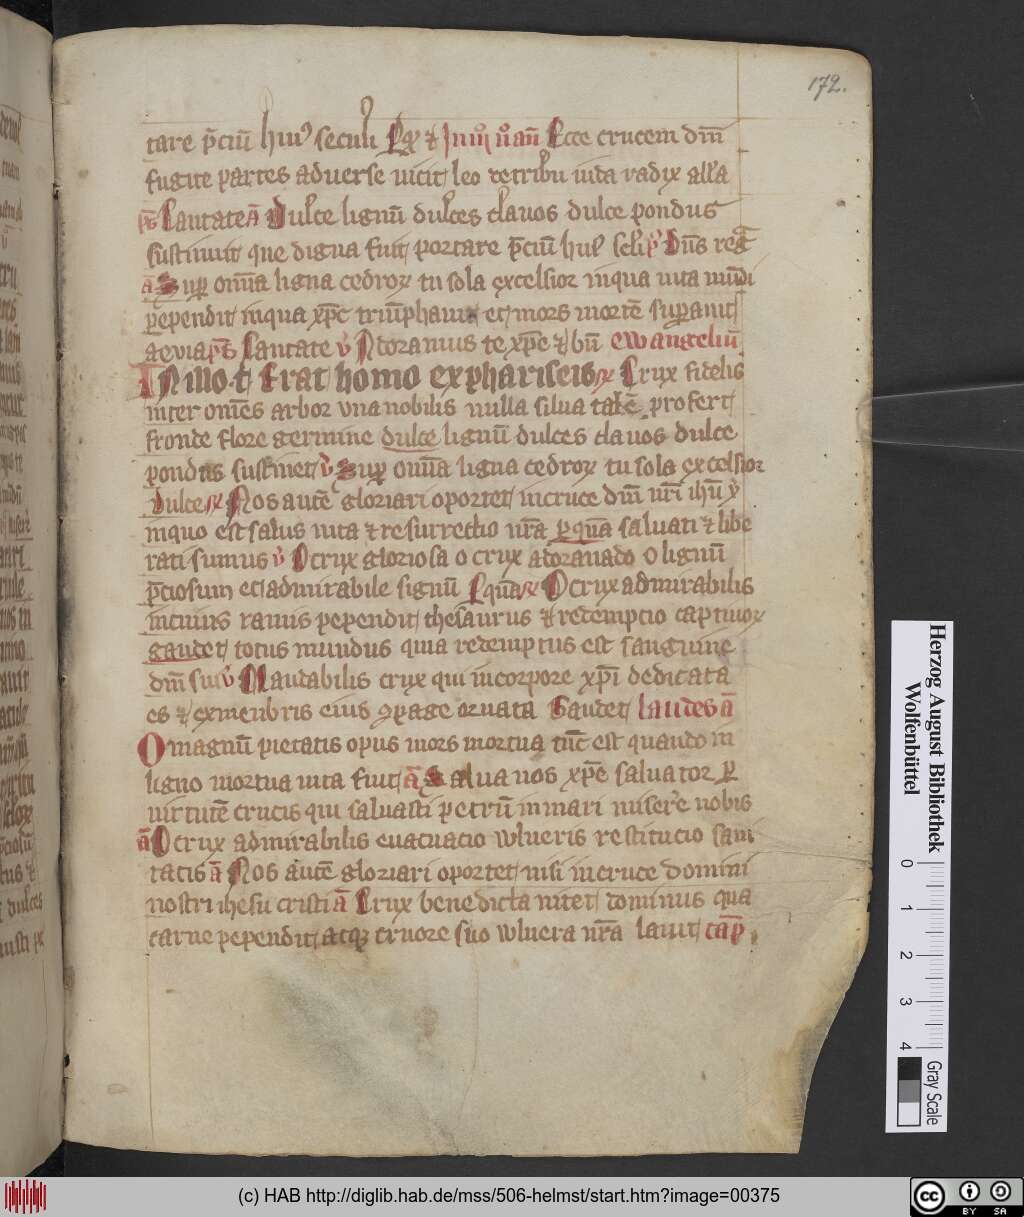 172.
tare p̄ciū hui⁹ seculi Egͦ ⁊ In iiiͦ nͦ an̄ Ecce crucem dm̄
fugite partes aduerse uicit leo de tribu iuda radix all'a
ps̄ Cantate ā Dulce lignū dulces clauos dulce pondus
sustinuit que digna fuit portare p̄ciū hui⁹ scl'i v̓ Dn̄s reḡ
ā Suꝑ omīa ligna cedroꝝ tu sola excelsior inqua uita mūdi
pependit inqua xp̄c triūphauit et mors mortē suꝑauit
aeuia ps̄ Cantate v̓ Adoramus te xp̄e ⁊ bn̄ ewangeliū
IN illo·t· Erat homo expharisei⁹ ꝶ Crux fidelis
inter om̄es arbor vna nobilis nulla silua talē profert
fronde flore germine dulce lignū dulces clauos dulce
pondus sustinet v̓ Suꝑ omīa ligna cedroꝝ tu sola excelsior
dulce ꝶ Nos autē gloriari oportet incruce dm̄ nr̄i ihū x̓
inquo est salus uita ⁊ resurrectio nr̄a ꝑ quā saluati ⁊ libe
rati sumus v̓ O crux gloriosa o crux adoranado o lignū
p̄ciosum et admirabile signū Ꝑquā ꝶ O crux admirabilis
incuius ramis pependit thesaurus ⁊ redempcio captiuoꝝ
gaudet totus mundus quia redemptus est sanguine
dm̄ sui v̓ Laudabilis crux qui incorpore xp̄i dedicata
es ⁊ exmenbris eius ꝯpage ornata Gaudet laudes ā
O magnū pietatis opus mors mortua tūc est quando in
ligno mortua uita fuit ā Salua nos xp̄e saluator ꝑ
uirtutē crucis qui saluasti petrū in mari miser̓e nobis
ā O crux admirabilis euacuacio wlneris restitucio sani
tatis ā Nos autē gloriari oportet nisi incruce domini
nostri ihesu cristi ā Crux benedicta nitet dominus qua
carne pependit atqꝫ cruore suo wlnera nr̄a lauit cap̄
Herzog August Bibliothek
Wolfenbüttel
0 1 2 3 4
Gray Scale
(c) HAB http://diglib.hab.de/mss/506-helmst/start.htm?image=00375
cc BY SA